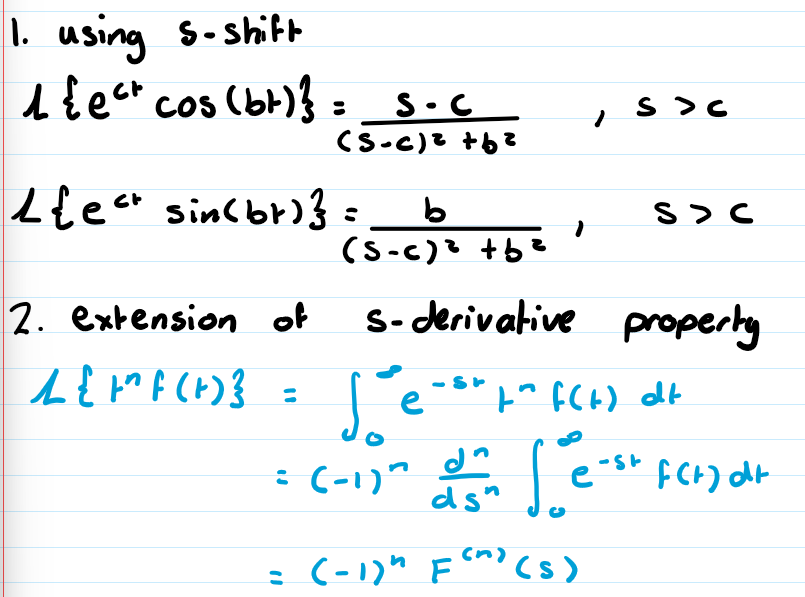 1. using s-shift
L{e^{ct} cos(bt)} = \frac{s-c}{(s-c)^2 + b^2} , s > c
L{e^{ct} sin(bt)} = \frac{b}{(s-c)^2 + b^2} , s > c
2. extension of s-derivative property
L{t^n f(t)} = \int_0^∞ e^{-st} t^n f(t) dt
= (-1)^n \frac{d^n}{ds^n} \int_0^∞ e^{-st} f(t) dt
= (-1)^n F^{(n)}(s)